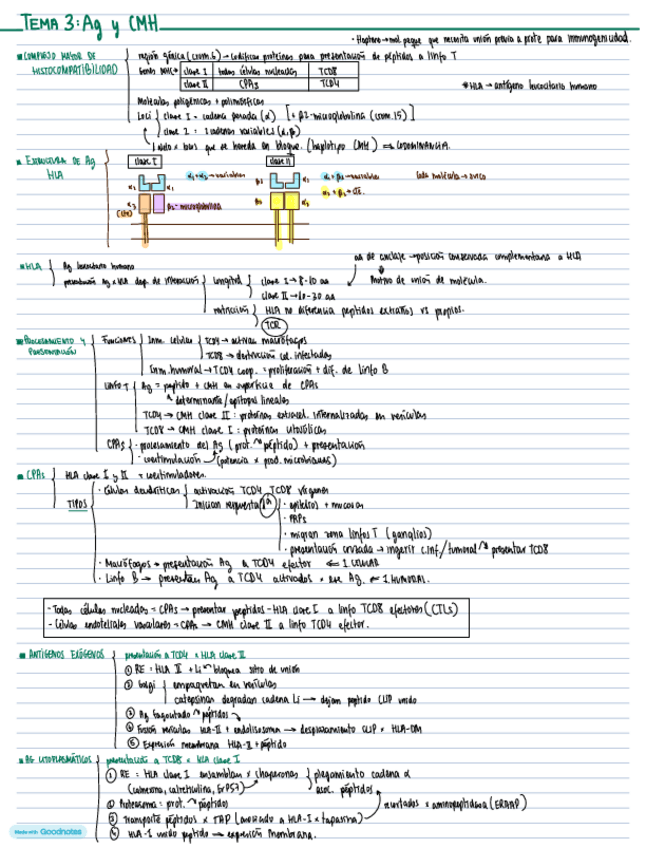 TEMA 3: Ag y CMH
· Hapteno → mol. peque que necesita unión previa a prote para inmunogenicidad.
COMPLEJO MAYOR DE HISTOCOMPATIBILIDAD
región génica (crom. 6) → codifican proteínas para presentación de péptidos a linfo T
clase I todas células nucleadas TCD8
clase II CPAs TCD4
* HLA → antígeno leucocitario humano
Moléculas poligénicas + polimórficas
Loci clase I = cadena pesada (α) [+ β2-microglobulina (crom. 15)]
clase 2 = 2 cadenas variables (α, β)
que se hereda en bloque. (haplotipo CMH) ⇒ CODOMINANCIA.
ESTRUCTURA DE Ag HLA
clase I
clase II
α₂ α₁
α₁ - α₂ → variables
β₁
α₁ - β₁ → variables
Cada molécula → surco
α₃ β₂ - microglobulina
(cte)
β₂ α₂
α₂ - β₂ → cte.
HLA
Ag leucocitario humano
presentación Ag x HLA dep. de interacción
longitud
clase I → 8-10 aa
clase II → 10-30 aa
aa de anclaje → posición conservada complementaria a HLA
Motivo de unión de molécula.
restricción HLA no diferencia péptidos extraños vs propios.
TCR
PROCESAMIENTO Y PRESENTACIÓN
FUNCIONES
Inm. celular TCD4 → activar macrófagos
TCD8 → destrucción cel. infectadas
Inm. humoral → TCD4 coop. = proliferación + dif. de linfo B
LINFO T
Ag = péptido + CMH en superficie de CPAs
determinante/epítopos lineales
TCD4 → CMH clase II: proteínas extracel. internalizadas en vesículas
TCD8 → CMH clase I: proteínas citosólicas
CPAs
· procesamiento del Ag (prot. ↷ péptido) + presentación
· coestimulación (potencia x prod. microbianas)
CPAs
HLA clase I y II + coestimuladores.
TIPOS
· Células dendríticas
activación TCD4, TCD8 vírgenes
Inician respuesta 1ª
· epitelios + mucosas
· PRPs
· migran zona linfos T (ganglios)
· presentación cruzada → ingerir c.inf/tumoral ↷ presentar TCD8
· Macrófagos → presentación Ag a TCD4 efector ⇐ I CELULAR
· Linfo B → presentan Ag a TCD4 activados x ese Ag. ⇐ I HUMORAL.
- Todas células nucleadas = CPAs → presentar péptidos - HLA clase I a linfo TCD8 efectores (CTLs)
- Células endoteliales vasculares = CPAs → CMH clase II a linfo TCD4 efector.
ANTÍGENOS EXÓGENOS
presentación a TCD4 x HLA clase II
① RE: HLA II + Li ↷ bloquea sitio de unión
② Golgi empaquetan en vesículas
catepsinas degradan cadena Li → dejan péptido CLIP unido
③ Ag fagocitado ↷ péptidos
④ Fusión vesículas HLA-II + endolisosoma → desplazamiento CLIP x HLA-DM
⑤ Expresión membrana HLA-II + péptido
AG CITOPLASMÁTICOS
presentación a TCD8 x HLA clase I
① RE: HLA clase I ensamblan x chaperonas
plegamiento cadena α
(calnexina, calreticulina, ErP57)
asoc. péptidos
② Proteasoma: prot. ↷ péptidos
recortados x aminopeptidasa (ERAAP)
③ Transporte péptidos x TAP (anclado a HLA-I x tapasina)
④ HLA-I unido péptido → expresión membrana.
Made with Goodnotes